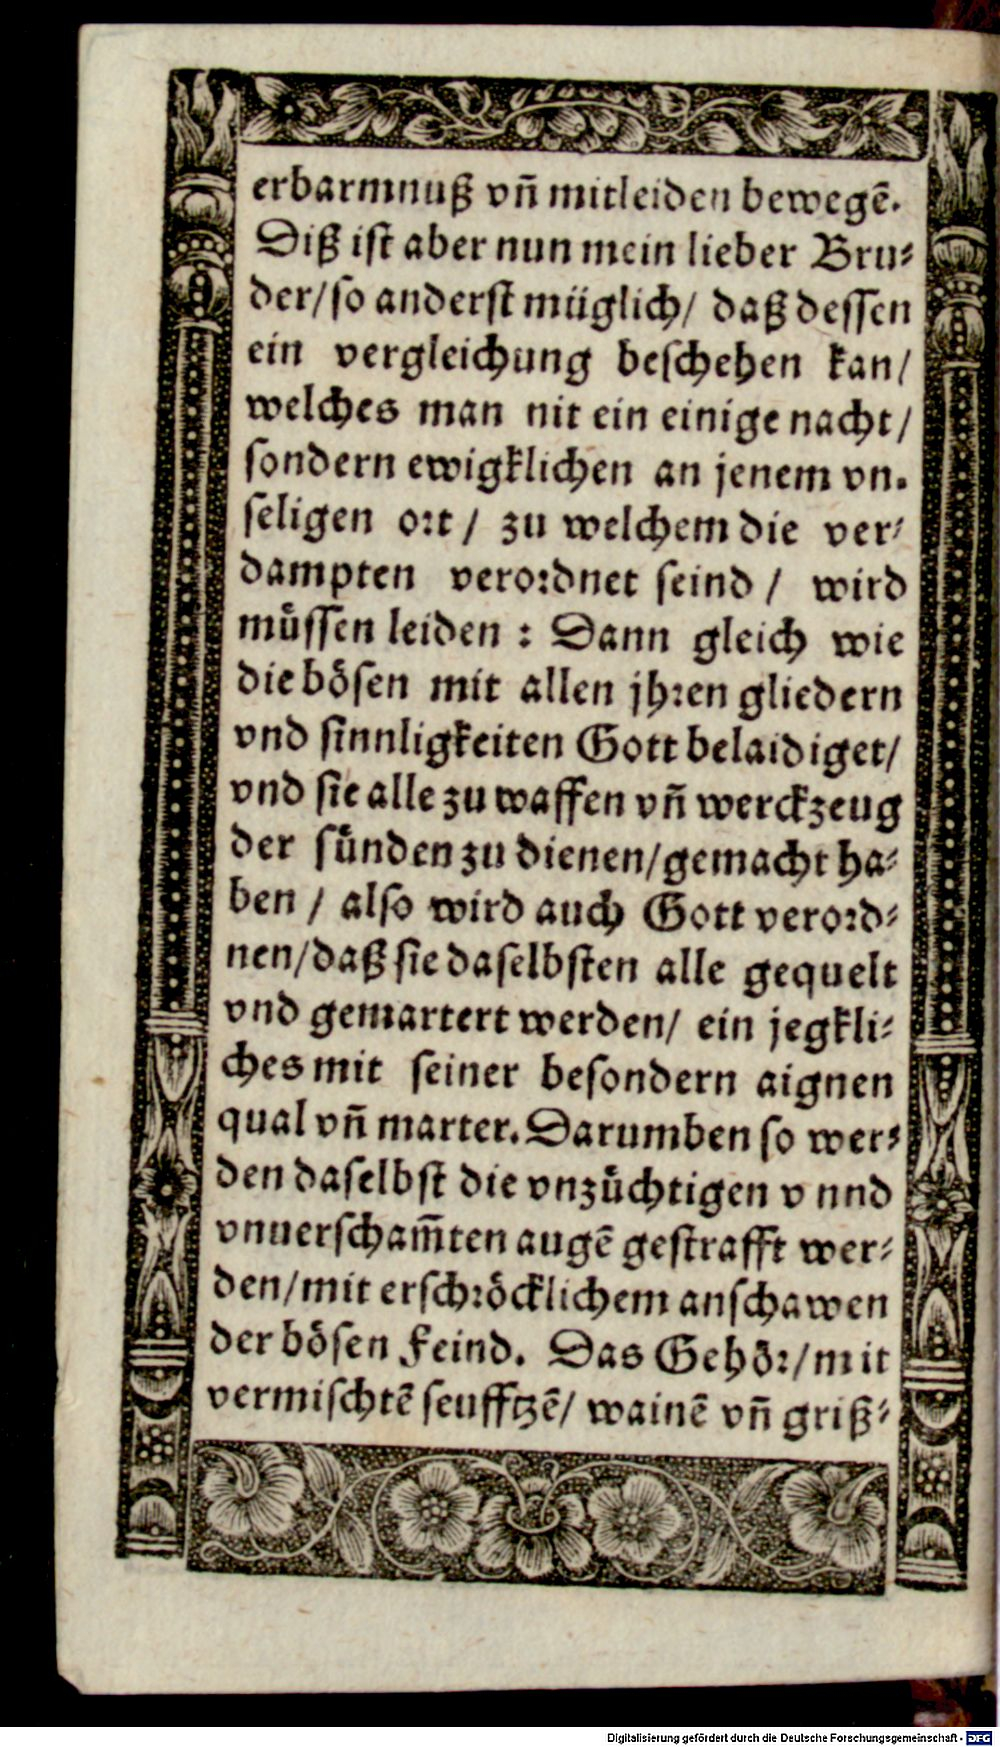 erbarmnuß vñ mitleiden bewegẽ.
Diß ist aber nun mein lieber Bru-
der/so anderst müglich/ daß dessen
ein vergleichung beschehen kan/
welches man nit ein einige nacht/
sondern ewigklichen an jenem vn.
seligen ort / zu welchem die ver-
dampten verordnet seind / wird
muͤssen leiden : Dann gleich wie
die boͤsen mit allen jhren gliedern
vnd sinnligkeiten Gott belaidiget/
vnd sie alle zu waffen vñ werckzeug
der suͤnden zu dienen/gemacht ha-
ben / also wird auch Gott verord-
nen/daß sie daselbsten alle gequelt
vnd gemartert werden/ ein jegkli-
ches mit seiner besondern aignen
qual vñ marter. Darumben so wer-
den daselbst die vnzuͤchtigen v nnd
vnuerscham̃ten augẽ gestrafft wer-
den/mit erschroͤcklichem anschawen
der boͤsen Feind. Das Gehoͤr/mit
vermischtẽ seufftzẽ/ wainẽ vñ griß-
Digitalisierung gefördert durch die Deutsche Forschungsgemeinschaft - DFG